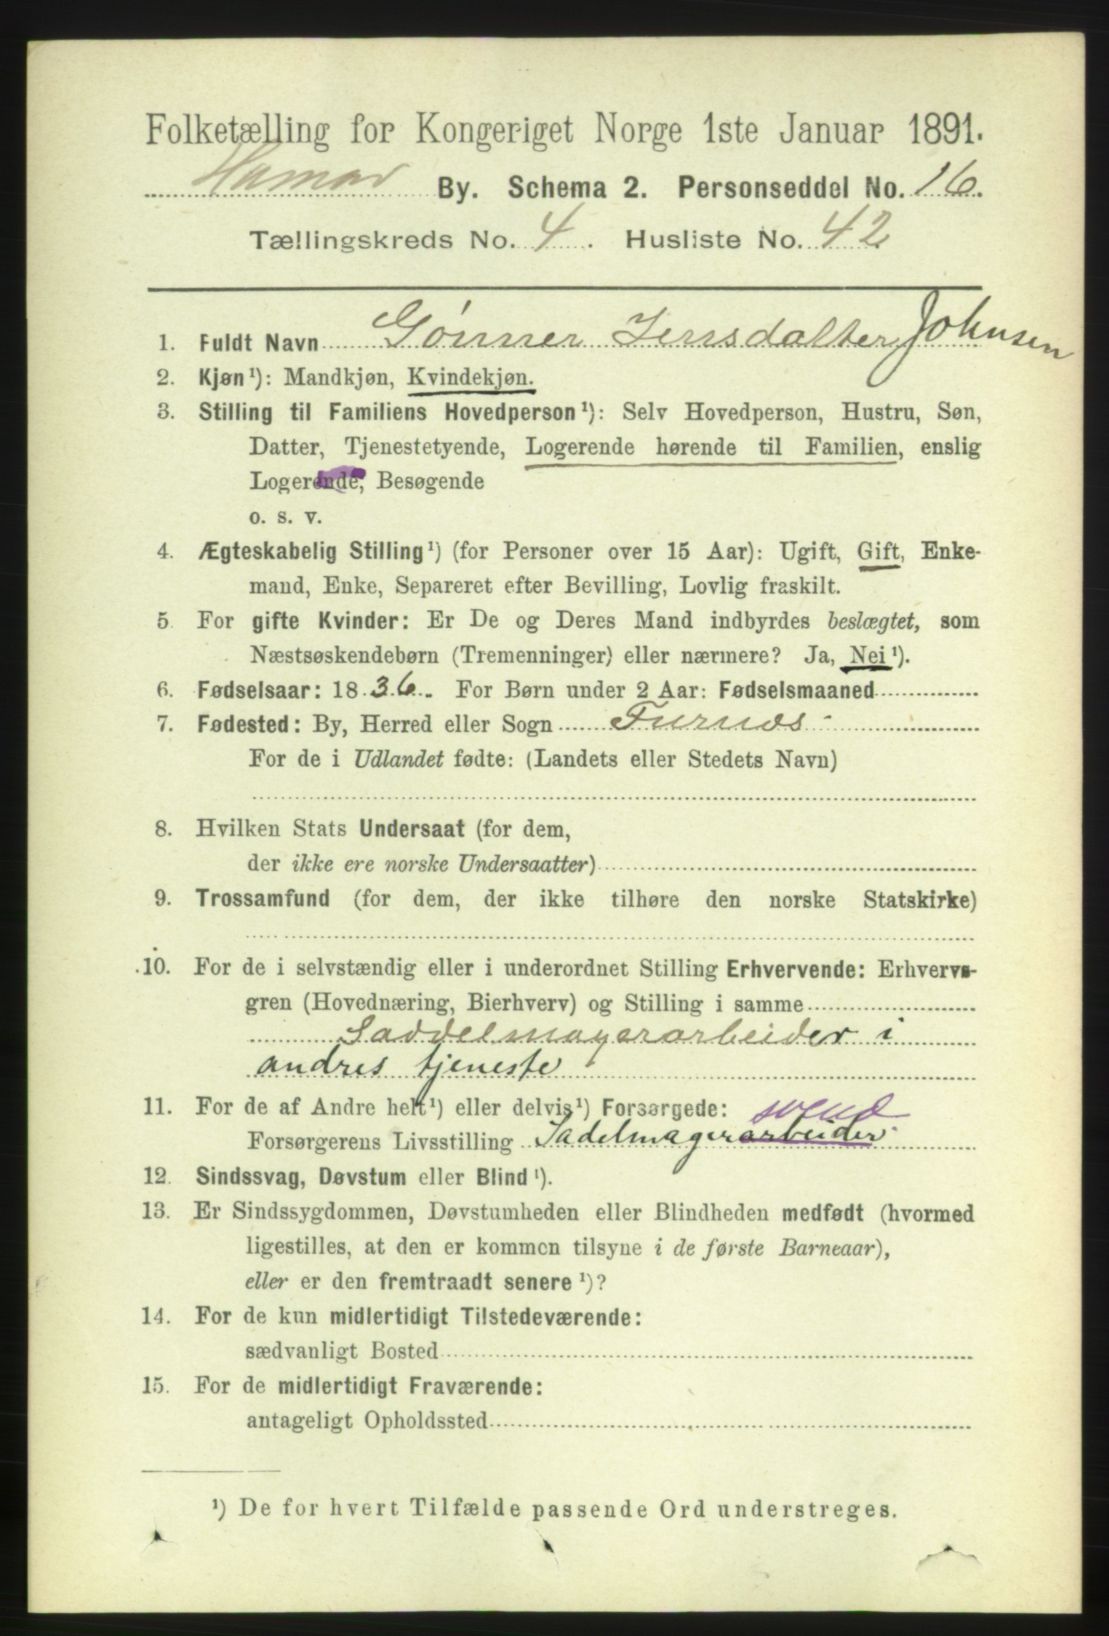 Folketælling for Kongeriget Norge 1ste Januar 1891.
Hamar By. Schema 2. Personseddel No. 16.
Tællingskreds No. 4. Husliste No. 42
1. Fuldt Navn Gønner Jensdatter Johnsen
2. Kjøn¹): Mandkjøn, Kvindekjøn.
3. Stilling til Familiens Hovedperson¹): Selv Hovedperson, Hustru, Søn,
Datter, Tjenestetyende, Logerende hørende til Familien, enslig
Logerende, Besøgende
o. s. v.
4. Ægteskabelig Stilling¹) (for Personer over 15 Aar): Ugift, Gift, Enke-
mand, Enke, Separeret efter Bevilling, Lovlig fraskilt.
5 For gifte Kvinder: Er De og Deres Mand indbyrdes beslægtet, som
Næstsøskendebørn (Tremenninger) eller nærmere? Ja, Nei¹).
6. Fødselsaar: 1836. For Børn under 2 Aar: Fødselsmaaned
7. Fødested: By, Herred eller Sogn Furnæs
For de i Udlandet fødte: (Landets eller Stedets Navn)
8. Hvilken Stats Undersaat (for dem,
der ikke ere norske Undersaatter)
9. Trossamfund (for dem, der ikke tilhøre den norske Statskirke)
10. For de i selvstændig eller i underordnet Stilling Erhvervende: Erhvervs-
gren (Hovednæring, Bierhverv) og Stilling i samme
Saddelmagerarbeider i
andres tjeneste
11. For de af Andre helt¹) eller delvis¹) Forsørgede: svend
Forsørgerens Livsstilling Sadelmagerarbeider
12. Sindssvag, Døvstum eller Blind¹).
13. Er Sindssygdommen, Døvstumheden eller Blindheden medfødt (hvormed
ligestilles, at den er kommen tilsyne i de første Barneaar),
eller er den fremtraadt senere¹)?
14. For de kun midlertidigt Tilstedeværende:
sædvanligt Bosted
15. For de midlertidigt Fraværende:
antageligt Opholdssted
¹) De for hvert Tilfælde passende Ord understreges.